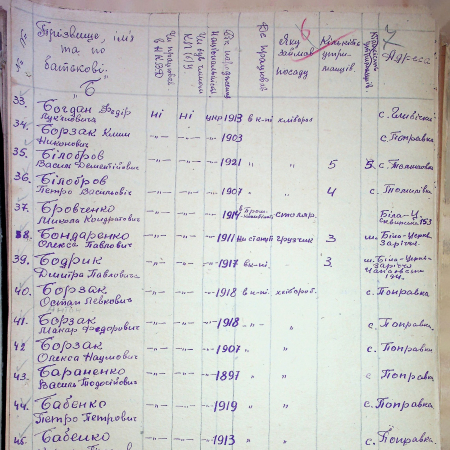 № Прізвище, ім'я та по батькові. Чи працював в НКВД Чи був членом КП(б)У Рік народження Національність Де працював Яку займав посаду Кількість утриманців Адреса
6 7
"Б"
33. Богдан Федір Лукічович ні ні укр 1913 в к-пі хлібороб с. Глибічка
34. Борзак Никонович -"- -"- -"- 1903 " " с. Поправка
35. Білобров Василь Дементійович -"- -"- -"- 1921 " " 5 с. Томилівка
36. Білобров Петро Васильович -"- -"- -"- 1907 " " 4 с. Томилівка
37. Бровченко Микола Кондратович -"- -"- -"- 1914 столяр. Біла-Ц. 153
38. Бондаренко Олекса Павлович -"- -"- -"- 1911 На станції грузчик 3 м. Біла-Церк. Заріччя
39. Бодрик Дмитро Павлович -"- -"- -"- 1917 в к-пі. " 3. м. Біла-Церк. Заріччя
40. Борзак Остап Левкович -"- -"- -"- 1918 в к-пі. хлібороб. с. Поправка
41. Борзак Макар Федорович -"- -"- -"- 1918 -"- " с. Поправка
42 Борзак Олекса Наумович -"- -"- -"- 1907 " " с. Поправка
43. Бараненко Василь Тодосійович -"- -"- -"- 1897 " " с Поправка
44. Бабенко Петро Петрович -"- -"- -"- 1919 " " с. Поправка
45. Бабенко -"- -"- -"- 1913 " " с. Поправка.